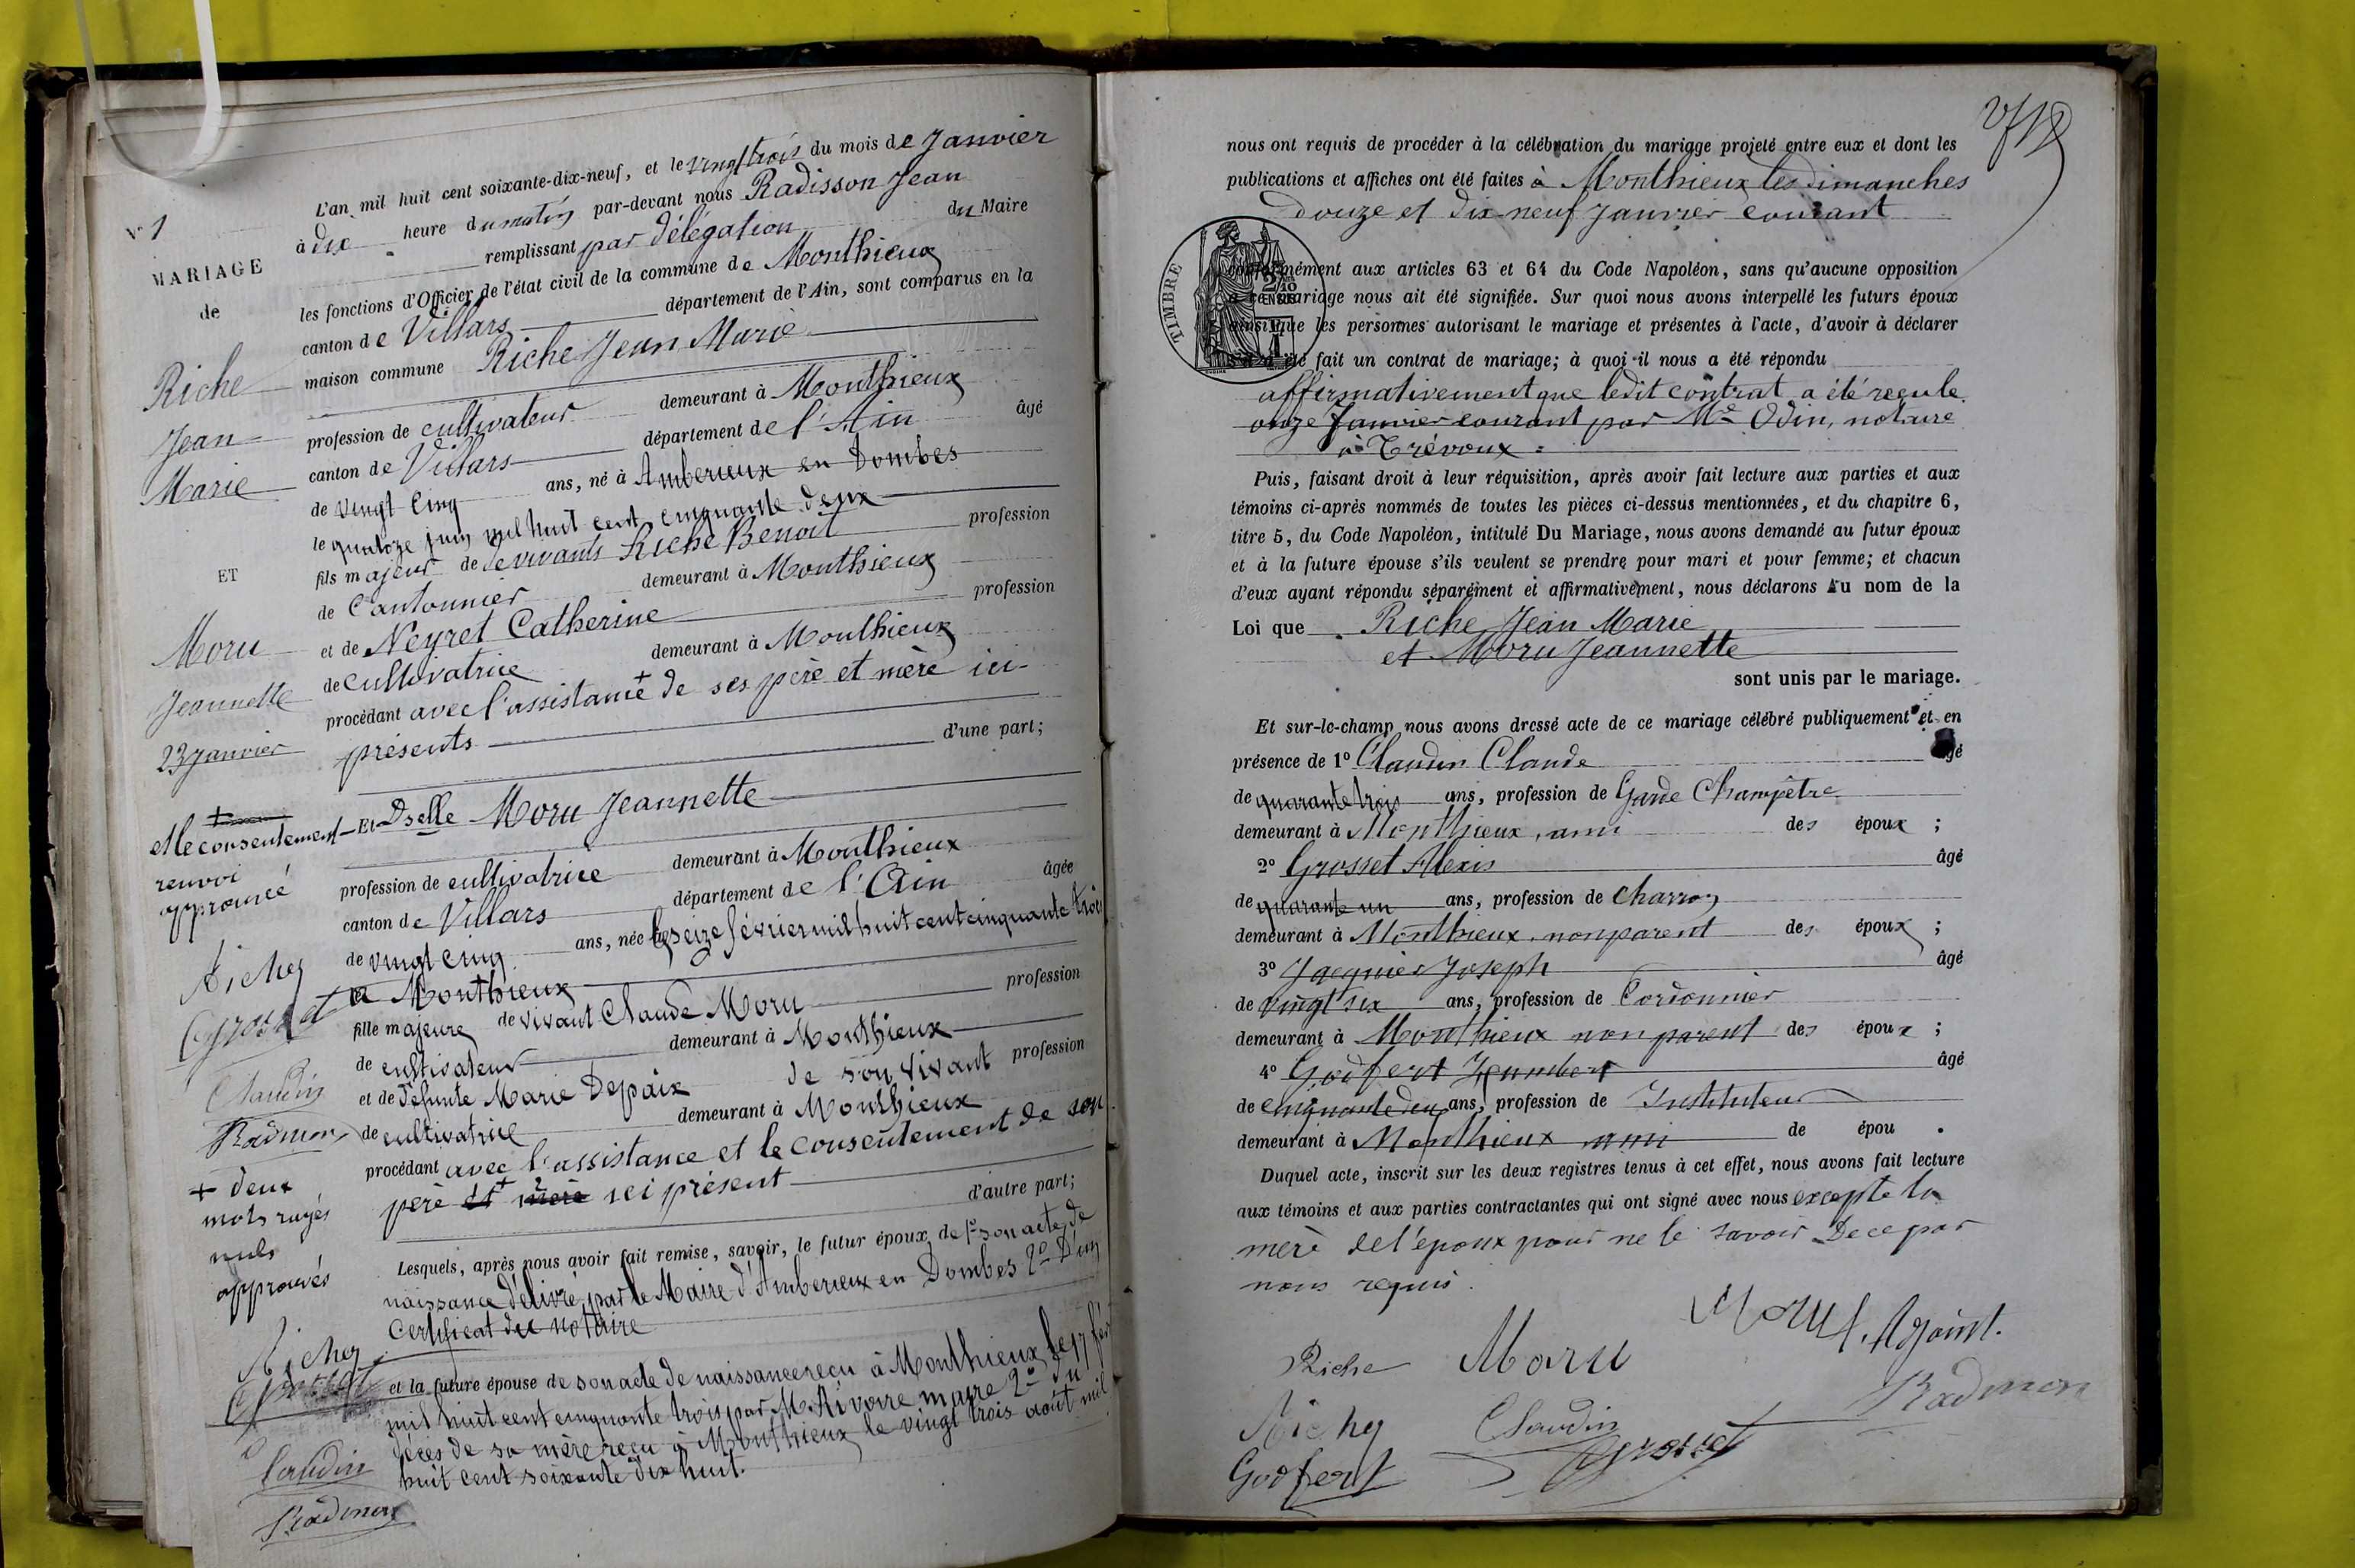 N° 1
MARIAGE
de
Riche
Jean
Marie
ET
Moru
Jeannette
23 Janvier
+
et le consentement
renvoi
approuvé
Riche
Grosset
Claudin
Radisson
+ deux
mots rayés
nuls
approuvés
Riche
Grosset
Claudin
Radisson
L'an mil huit cent soixante-dix-neuf, et le vingt trois du mois de Janvier
à dix heure du matin par-devant nous Radisson Jean
remplissant par délégation du Maire
les fonctions d'Officier de l'état civil de la commune de Monthieux
canton de Villars département de l'Ain, sont comparus en la
maison commune Riche Jean Marie
profession de cultivateur demeurant à Monthieux
canton de Villars département de l'Ain âgé
de vingt cinq ans, né à Amberieux en Dombes
le quatorze juin mil huit cent cinquante deux
fils majeur de de vivants Riche Benoit profession
de Cantonnier demeurant à Monthieux
et de Neyret Catherine profession
de cultivatrice demeurant à Monthieux
procédant avec l'assistance + de ses père et mère ici
présents d'une part;
Et Dselle Moru Jeannette
profession de cultivatrice demeurant à Monthieux
canton de Villars département de l'Ain âgée
de vingt cinq ans, née le seize février mil huit cent cinquante trois
a Monthieux
fille majeure de vivant Claude Moru profession
de cultivateur demeurant à Monthieux
et de défunte Marie Depaix de son vivant profession
de cultivatrice demeurant à Monthieux
procédant avec l'assistance et le consentement de son
père et + mère ici présent d'autre part;
Lesquels, après nous avoir fait remise, savoir, le futur époux de 1° son acte de
naissance délivré par le Maire d'Amberieux en Dombes 2° D'un
Certificat du notaire
et la future épouse de son acte de naissance reçu à Monthieux le 17 fév
mil huit cent cinquante trois par M. Rivoire maire 2° du
décès de sa mère reçu à Monthieux le vingt trois août mil
huit cent soixante dix huit.
nous ont requis de procéder à la célébration du mariage projeté entre eux et dont les
publications et affiches ont été faites à Monthieux les dimanches
douze et dix neuf Janvier courant
TIMBRE
conformément aux articles 63 et 64 du Code Napoléon, sans qu'aucune opposition
à ce mariage nous ait été signifiée. Sur quoi nous avons interpellé les futurs époux
ainsi que les personnes autorisant le mariage et présentes à l'acte, d'avoir à déclarer
s'il a été fait un contrat de mariage; à quoi il nous a été répondu
affirmativement que ledit contrat a été reçu le
onze Janvier courant par Me Odin, notaire
à Trévoux
Puis, faisant droit à leur réquisition, après avoir fait lecture aux parties et aux
témoins ci-après nommés de toutes les pièces ci-dessus mentionnées, et du chapitre 6,
titre 5, du Code Napoléon, intitulé Du Mariage, nous avons demandé au futur époux
et à la future épouse s'ils veulent se prendre pour mari et pour femme; et chacun
d'eux ayant répondu séparément et affirmativement, nous déclarons au nom de la
Loi que Riche Jean Marie
et Moru Jeannette
sont unis par le mariage.
Et sur-le-champ nous avons dressé acte de ce mariage célébré publiquement et en
présence de 1° Claudin Claude âgé
de quarante trois ans, profession de Garde Champêtre
demeurant à Monthieux, ami des époux ;
2° Grosset Alexis âgé
de quarante un ans, profession de charron
demeurant à Monthieux, non parent des époux ;
3° Jacquier Joseph âgé
de vingt six ans, profession de Cordonnier
demeurant à Monthieux non parent des époux ;
4° Godfert Humbert âgé
de cinquante deux ans, profession de Instituteur
demeurant à Monthieux ami de épou .
Duquel acte, inscrit sur les deux registres tenus à cet effet, nous avons fait lecture
aux témoins et aux parties contractantes qui ont signé avec nous excepté la
mère de l'époux pour ne le savoir De ce par
nous requis.
Riche Moru Moru
Adjoint.
Radisson
Riche Claudin
Godfert Grosset